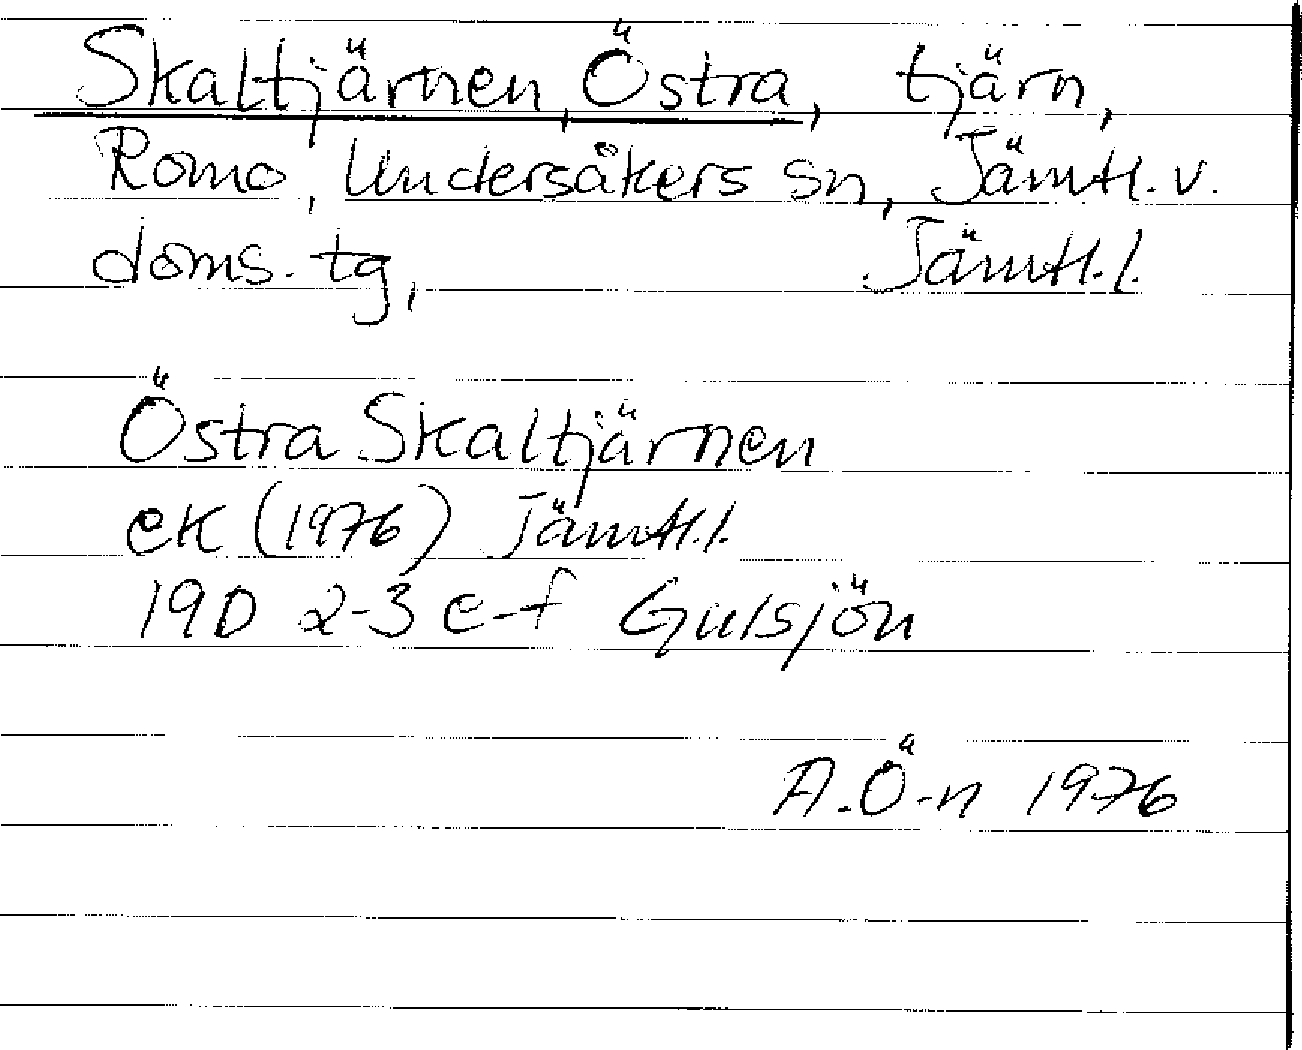 Skaltjärnen, Östra, tjärn,
Romo, Undersåkers sn, Jämtl. v.
doms. tg, Jämtl. l.
Östra Skaltjärnen
ek (1976) Jämtl. l.
19D 2-3 e-f Gulsjön
A.Ö-n 1976